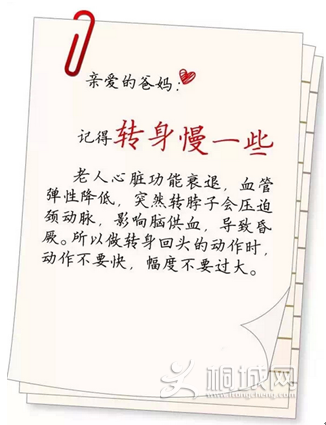 亲爱的爸妈：
记得转身慢一些
老人心脏功能衰退，血管
弹性降低，突然转脖子会压迫
颈动脉，影响脑供血，导致昏
厥。所以做转身回头的动作时，
动作不要快，幅度不要过大。
桐城网
tongcheng.com